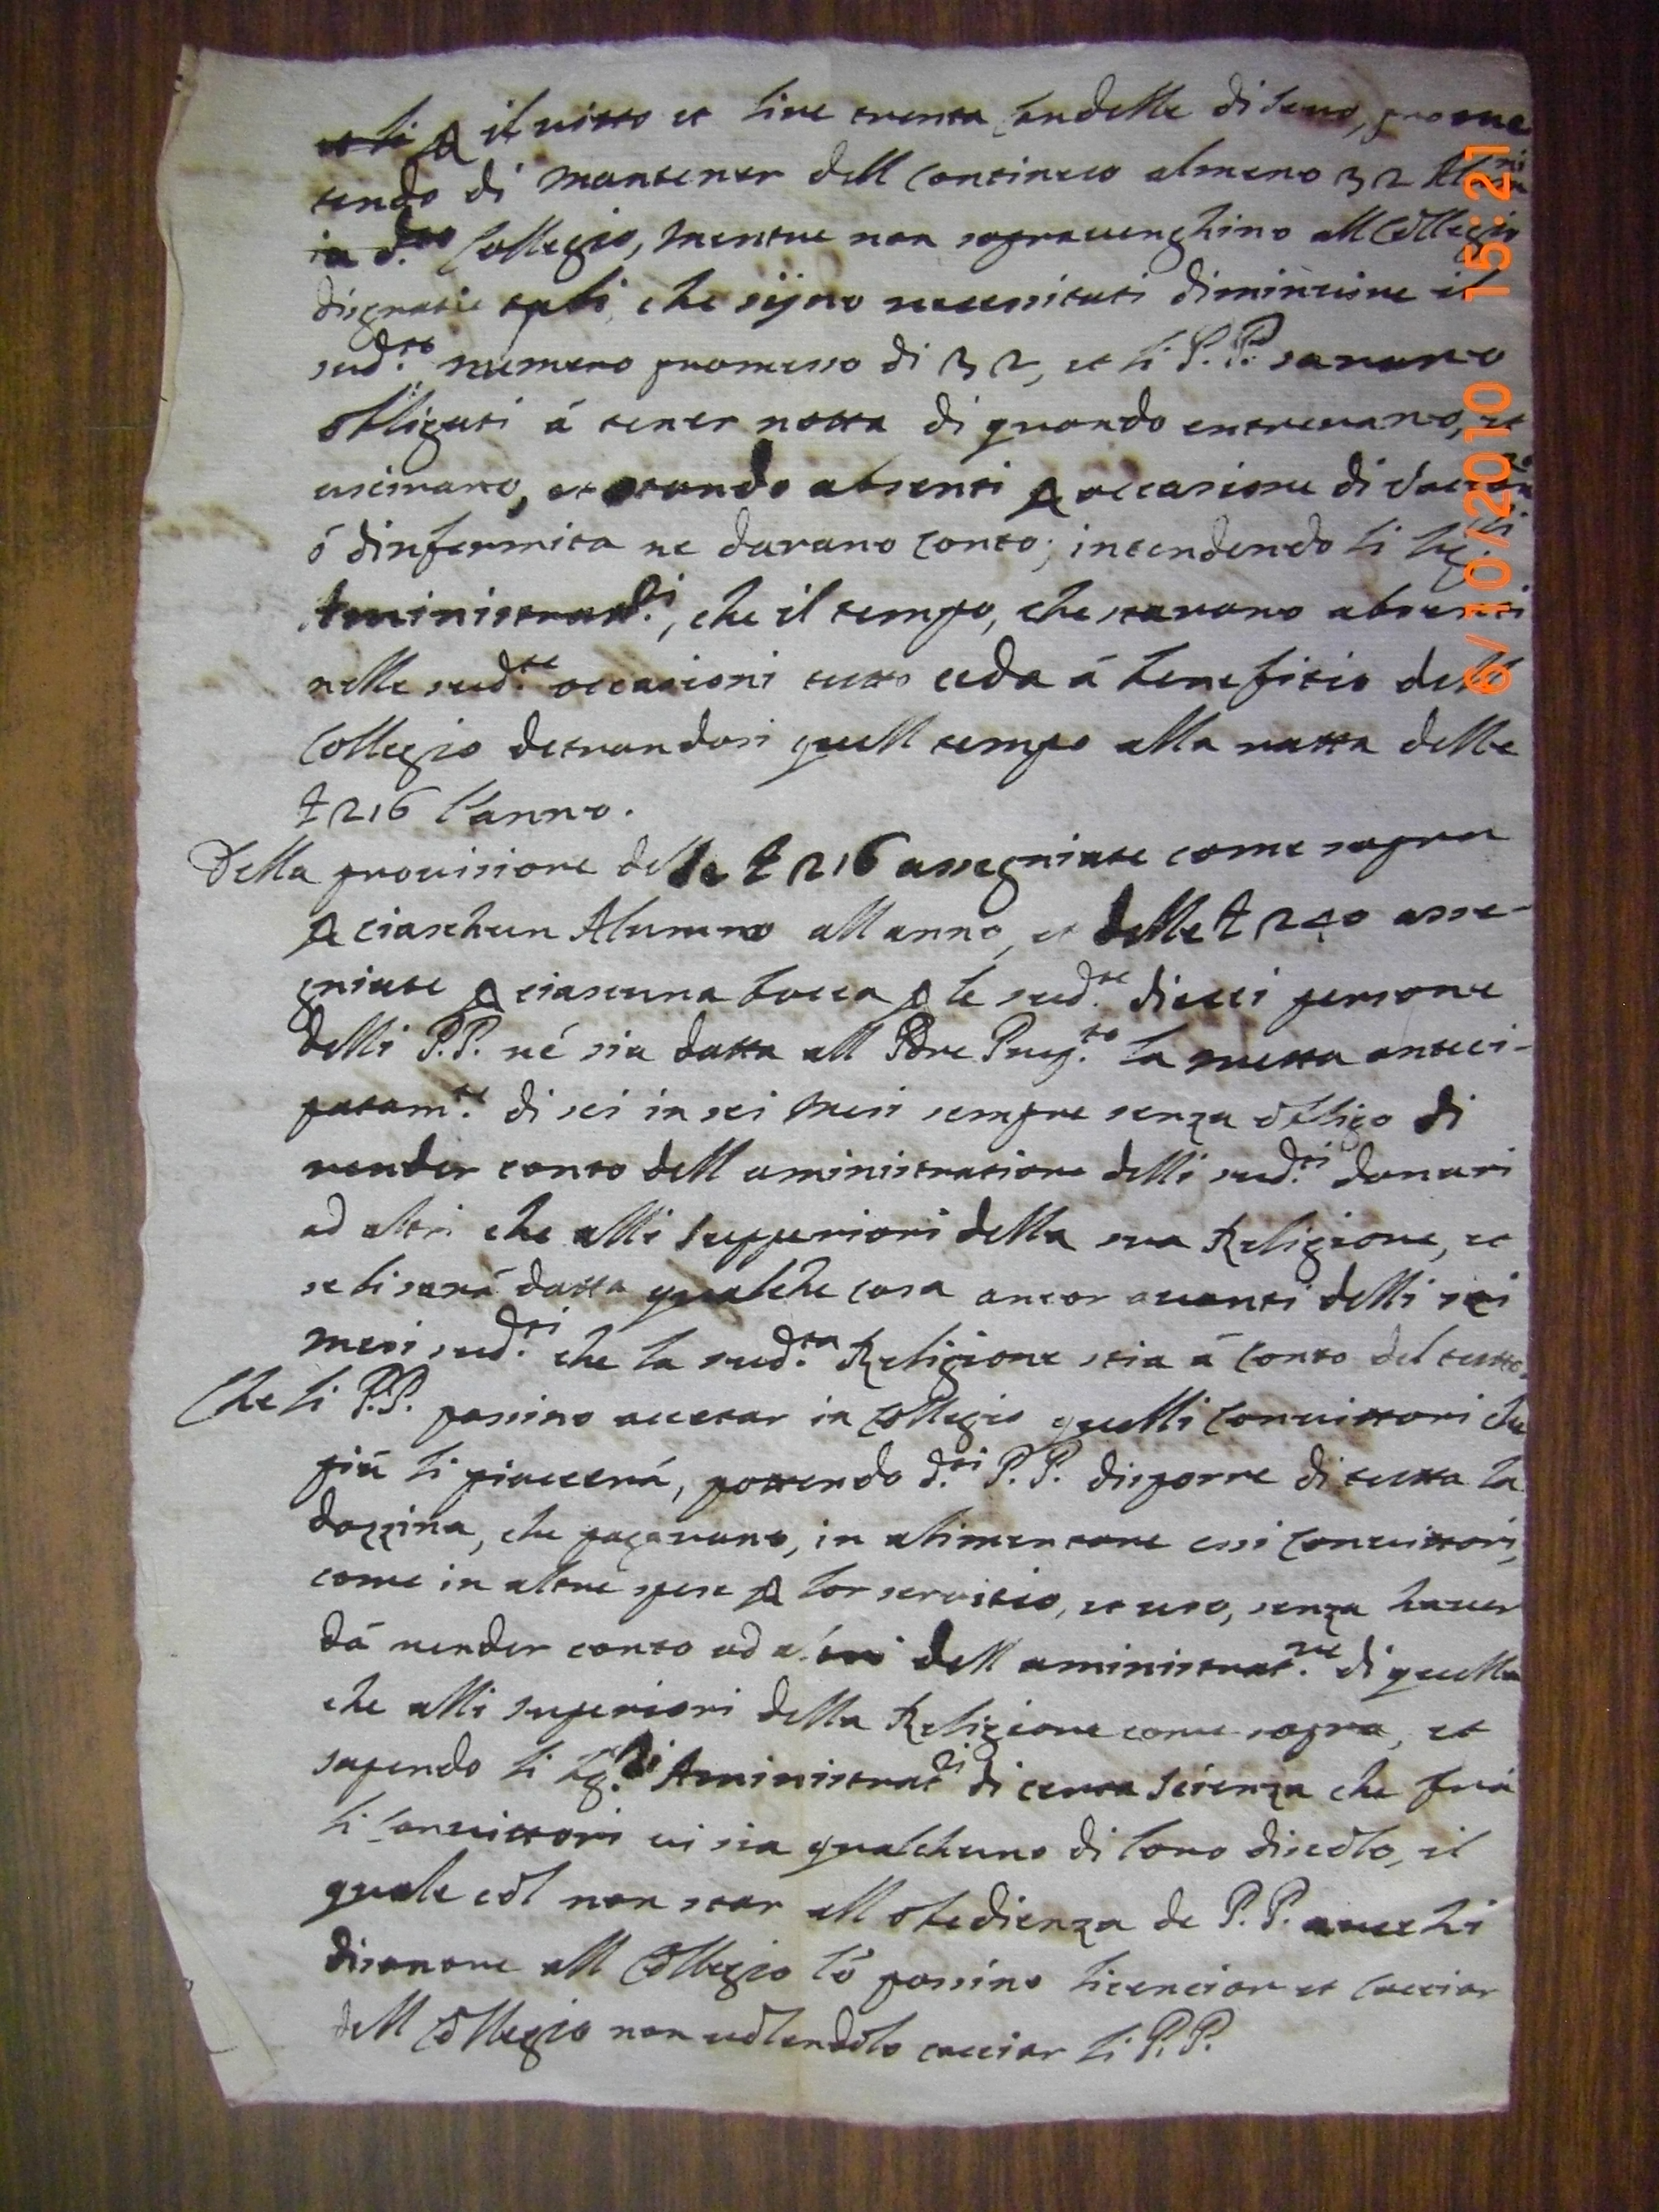 il vitto et lire trenta candelle di seuo, prome
tendo di mantener dell continuo almeno 32 Alun.ni
in d.to Collegio, mentre non sopravenghino all Collegio
disgratie tali, che sijno necessitati diminuire il
sud.to numero promesso di 32, et li P.P. sarano
obligati á tener notta di quando entrerano, et
uscirano, et stando absenti p occasione di
ó d'infermita ne darano conto; intendendo li
Aministrat.ri, che il tempo, che starano absenti
nelle sud.te occasioni tutto ceda á beneficio dell
Collegio detrandosi quell tempo alla ratta delle
£ 216 l'anno.
Della provisione delle £ 216 assegniate come sopra
p ciaschun Alunno all anno, et delle £ 240 asse-
gniate p ciascuna bocca p le sud.te dieci persone
delli P.P. né sia datta all Pdre Prep.to la metta antici-
patam.te di sei in sei mesi sempre senza obligo di
render conto dell aministratione delli sud.ti danari
ad altri che alli Supperiori della sua Religione, et
se li sará datta qualche cosa ancor avanti delli sei
mesi sud.ti che la sud.ta Religione stia á conto del tutto.
Che li P.P. possino accetar in Collegio quelli Convittori che
piú li piacerá, pottendo d.ti P.P. disporre di tutta la
dozzina, che pagarano, in alimentare essi Convittori,
come in altre spese p lor servitio, et uso, senza haver
dá render conto ad altri dell aministrat.ne di quella
che alli superiori della Religione come sopra, et
sapendo li Aministrat.ri di certa scienza che frá
li Convittori vi sia qualchuno di loro discolo, il
quale col non star all obedienza de P.P. arrechi
disonore all Collegio ló possino licenciar et cacciar
dell Collegio non volendolo cacciar li P.P.
6/10/2010 15:21